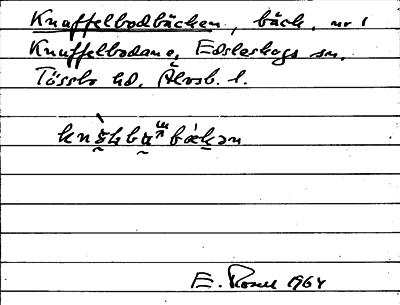 Knuffelbodbäcken, bäck, nr 1
Knuffelbodane, Edsleskogs sn,
Tössbo hd, Älvsb. l.
E. Rosell 1964